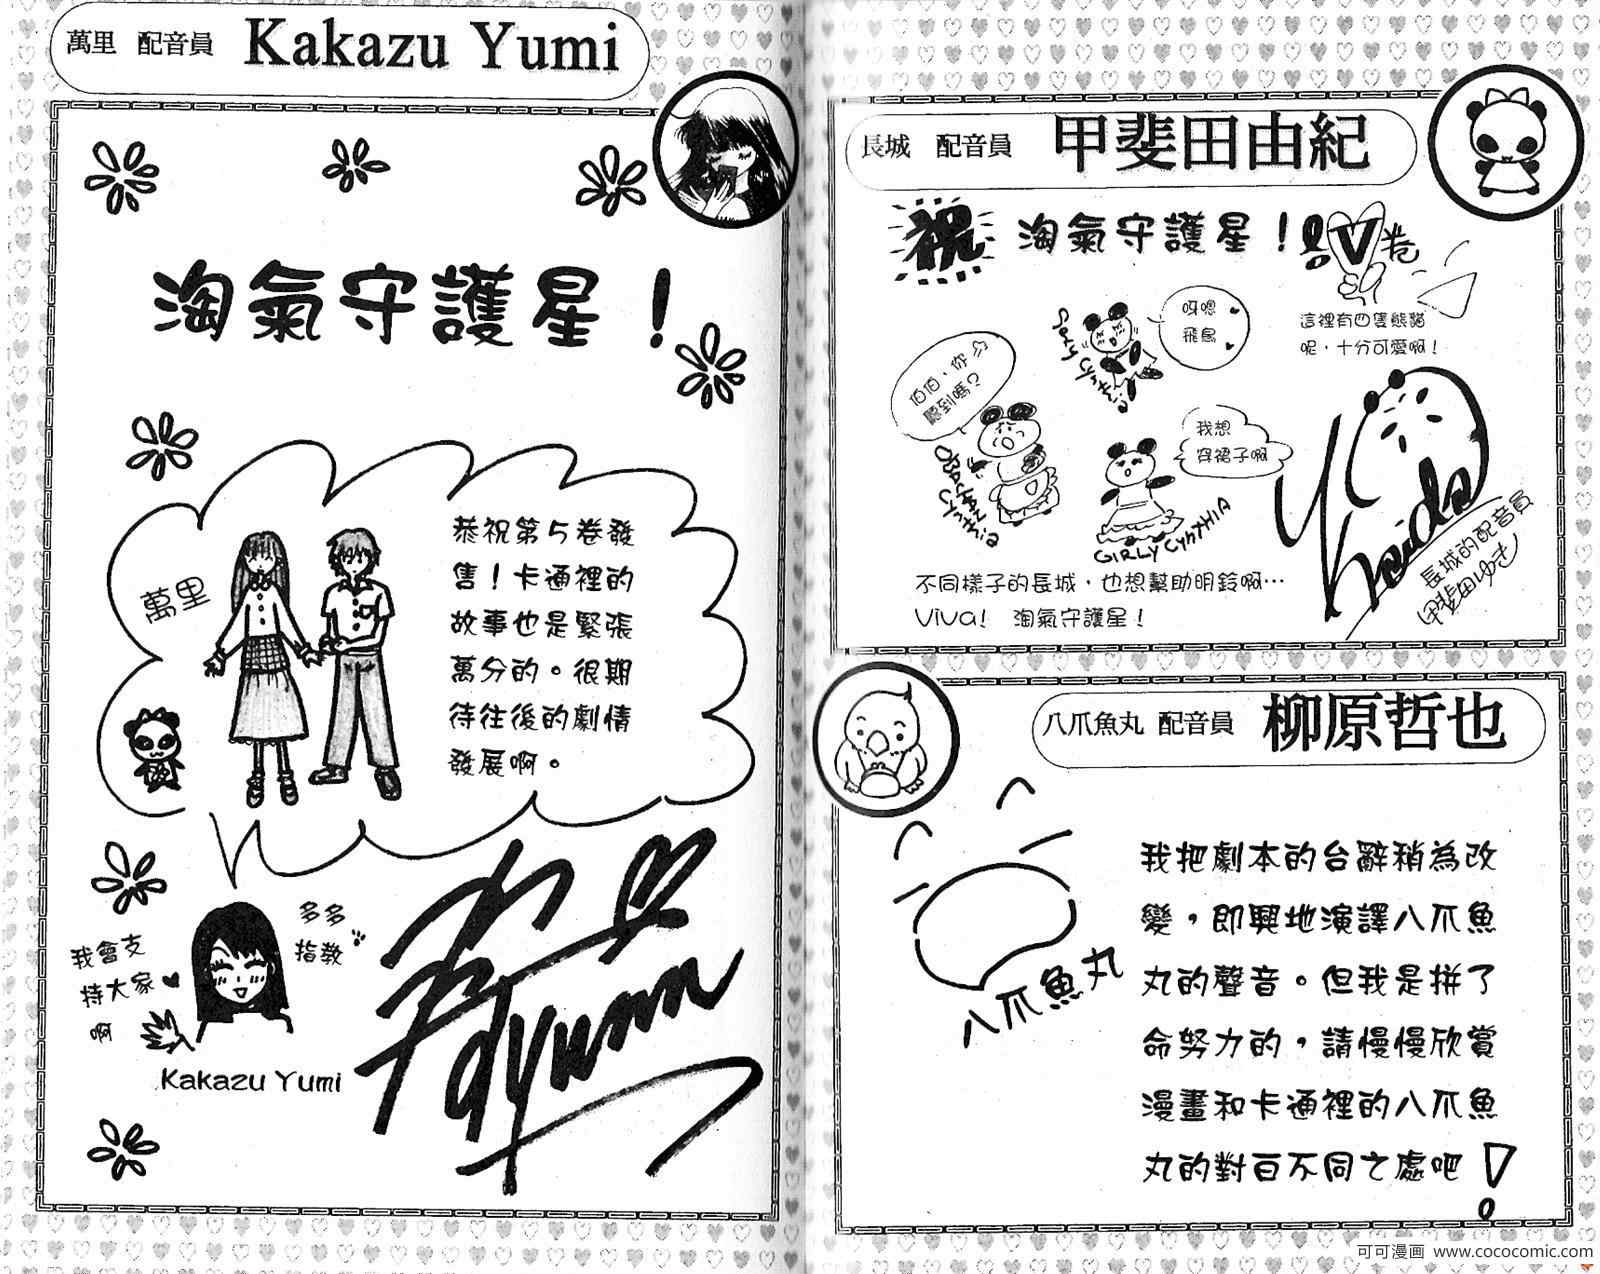 萬里 配音員 Kakazu Yumi
淘氣守護星！
萬里
恭祝第5卷發
售！卡通裡的
故事也是緊張
萬分的。很期
待往後的劇情
發展啊。
多多
指教
我會支
持大家
啊
Kakazu Yumi
長城 配音員 甲斐田由紀
祝 淘氣守護星！V卷
這裡有四隻熊貓
呢，十分可愛啊！
呀嗯
飛鳥
SEXY Cynthia
伯伯，你
聽到嗎？
OBACHAN
Cynthia
我想
穿裙子啊
GIRLY CynTHIA
不同樣子的長城，也想幫助明鈴啊…
Viva！ 淘氣守護星！
長城的配音員
甲斐田ゆき
八爪魚丸 配音員 柳原哲也
八爪魚丸
我把劇本的台辭稍為改
變，即興地演譯八爪魚
丸的聲音。但我是拼了
命努力的，請慢慢欣賞
漫畫和卡通裡的八爪魚
丸的對白不同之處吧！
可可漫画 www.cococomic.com